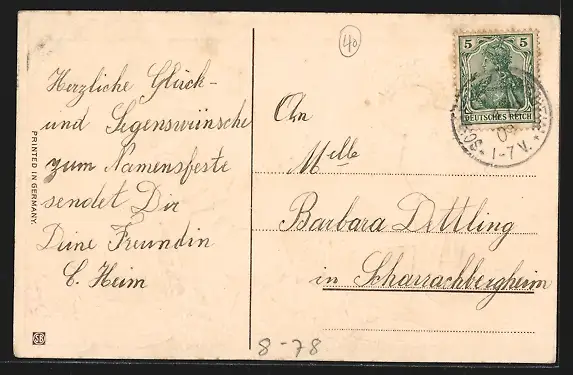 40
Herzliche Glück-
und Segenswünsche
zum Namensfeste
sendet Dir
Deine Freundin
C. Heim
PRINTED IN GERMANY.
SB
5 5
DEUTSCHES REICH
09
1-7 V.
An
Melle
Barbara Dettling
in Scharrachbergheim
8-78